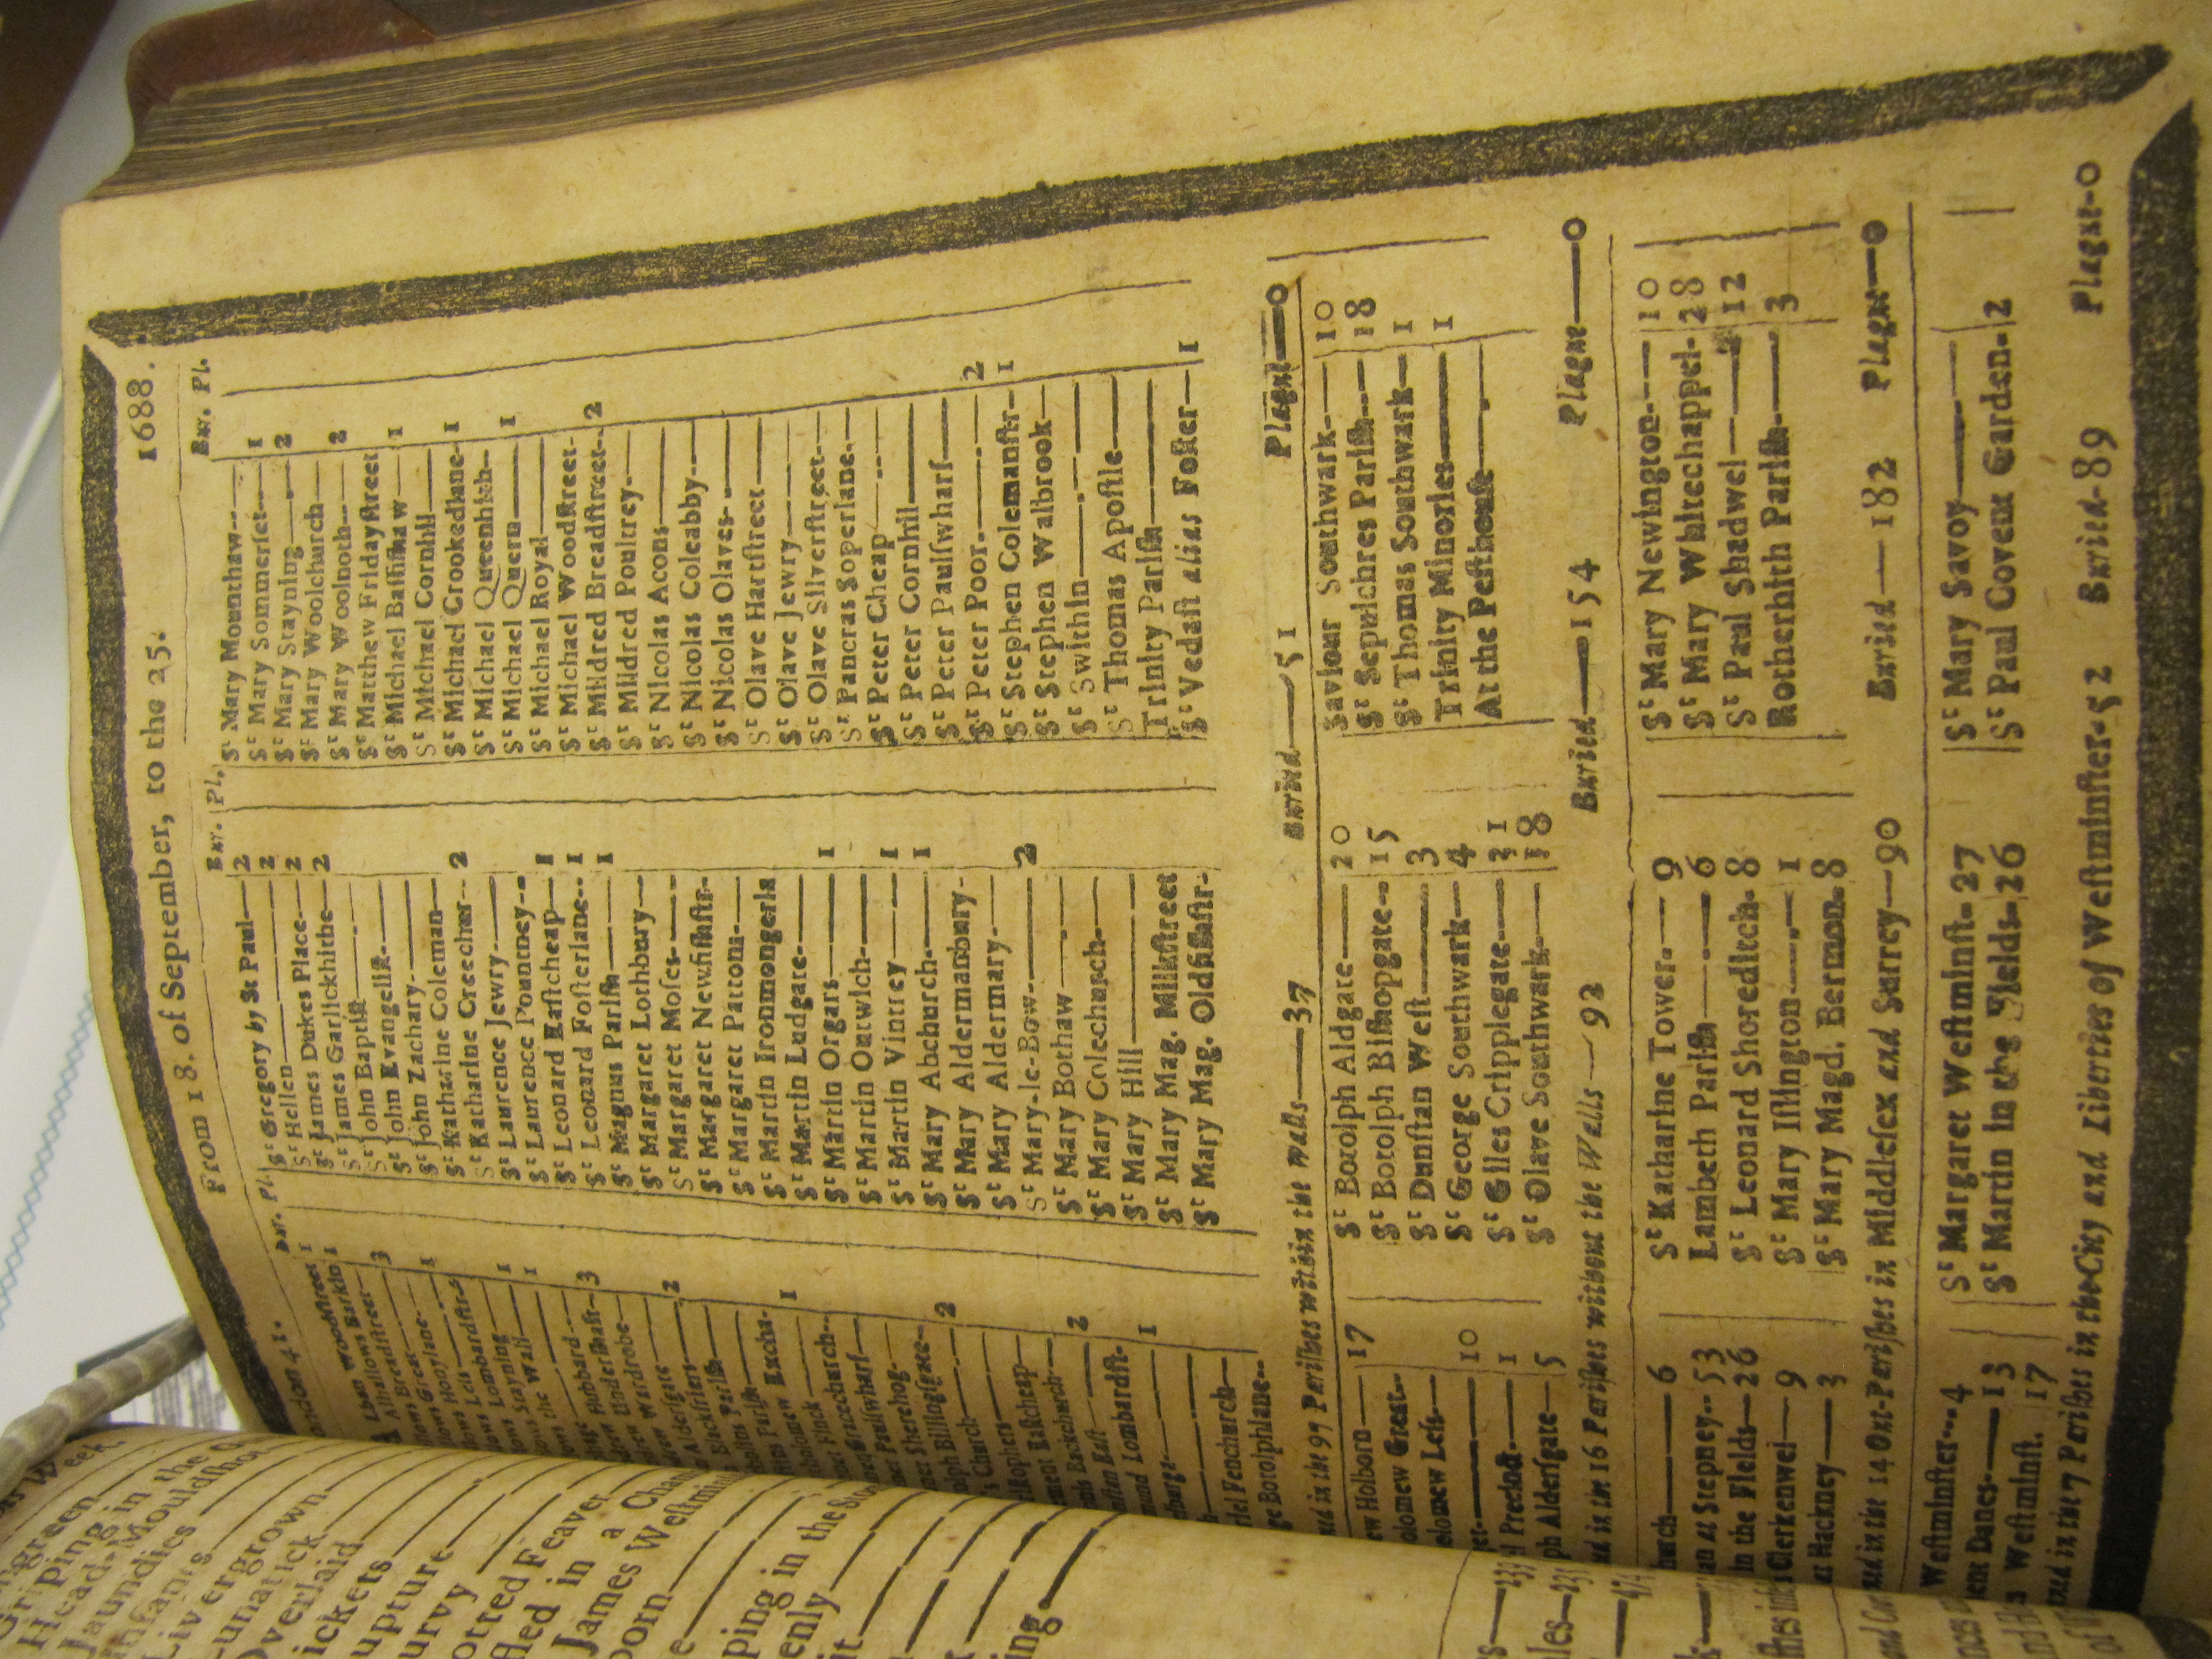 London 41. From 18. of September, to the 25. 1688.
Bur. Pl.
Woodstreet 1
Alhallows Barkin 1
Breadstreet 3
Great
Honylane 1
Less
Lombardstr.
Stayning 1
the Wall 1
Hubbard
Undershaft 3
Wardrobe
Aldersgate 2
Blackfriers
Parish
Parish
Excha. 1
Finck
Gracechurch
Paulswharf
Sherehog
Billingsgate 2
Church
Eastcheap
Backchurch 2
East
Lombardst. 1
Fenchurch
Botolphlane
Bur. Pl.
St Gregory by St Paul 2
St Hellen 2
St James Dukes Place 2
St James Garlickhithe 2
St John Baptist
St John Evangelist
St John Zachary
St Katharine Coleman
St Katharine Creechur 2
St Laurence Jewry
St Laurence Pountney
St Leonard Eastcheap 1
St Leonard Fosterlane 1
St Magnus Parish 1
St Margaret Lothbury
St Margaret Moses
St Margaret Newfishstr.
St Margaret Pattons
St Martin Ironmongerla
St Martin Ludgate
St Martin Orgars 1
St Martin Outwich
St Martin Vintrey 1
St Mary Abchurch 1
St Mary Aldermanbury
St Mary Aldermary
St Mary-le-Bow 2
St Mary Bothaw
St Mary Colechurch
St Mary Hill
St Mary Mag. Milkstreet
St Mary Mag. Oldfishstr.
Bur. Pl.
St Mary Mounthaw
St Mary Sommerset 1
St Mary Stayning 2
St Mary Woolchurch
St Mary Woolnoth 2
St Matthew Fridaystreet
St Michael Bassishaw 1
St Michael Cornhil
St Michael Crookedlane 1
St Michael Queenhith
St Michael Quern 1
St Michael Royal
St Michael Woodstreet
St Mildred Breadstreet 2
St Mildred Poultrey
St Nicolas Acons
St Nicolas Coleabby
St Nicolas Olaves
St Olave Hartstreet
St Olave Jewry
St Olave Silverstreet
St Pancras Soperlane
St Peter Cheap
St Peter Cornhil
St Peter Paulswharf
St Peter Poor 2
St Stephen Colemanstr 1
St Stephen Walbrook
St Swithin
St Thomas Apostle
Trinity Parish
St Vedast alias Foster 1
in the 97 Parishes within the Walls 37 Buried 51 Plague 0
Holborn 17
Great
Less
10
Precinct 1
Aldersgate 5
St Botolph Aldgate 20
St Botolph Bishopgate 15
St Dunstan West 3
St George Southwark 4
St Giles Cripplegate 31
St Olave Southwark 18
Saviour Southwark 10
St Sepulchres Parish 18
St Thomas Southwark 1
Trinity Minories 1
At the Pesthouse
in the 16 Parishes without the Walls 92 Buried 154 Plague 0
6
at Stepney 53
in the Fields 26
Clerkenwel 9
at Hackney 3
St Katharine Tower 9
Lambeth Parish 6
St Leonard Shoreditch 8
St Mary Islington 1
St Mary Magd. Bermon. 8
St Mary Newington 10
St Mary Whitechappel 28
St Paul Shadwel 12
Rotherhith Parish 3
in the 14 Out-Parishes in Middlesex and Surrey 90 Buried 182 Plague 0
Westminster 4
Danes 13
Westminst. 17
St Margaret Westminst. 27
St Martin in the Fields 26
St Mary Savoy
St Paul Covent Garden 2
in the 7 Parishes in the City and Liberties of Westminster 52 Buried 89 Plague 0
Head-
Jaundies
Infants
Livergrown
Lunatick
Overlaid
Rickets
Rupture
Scurvy
Spotted Feaver